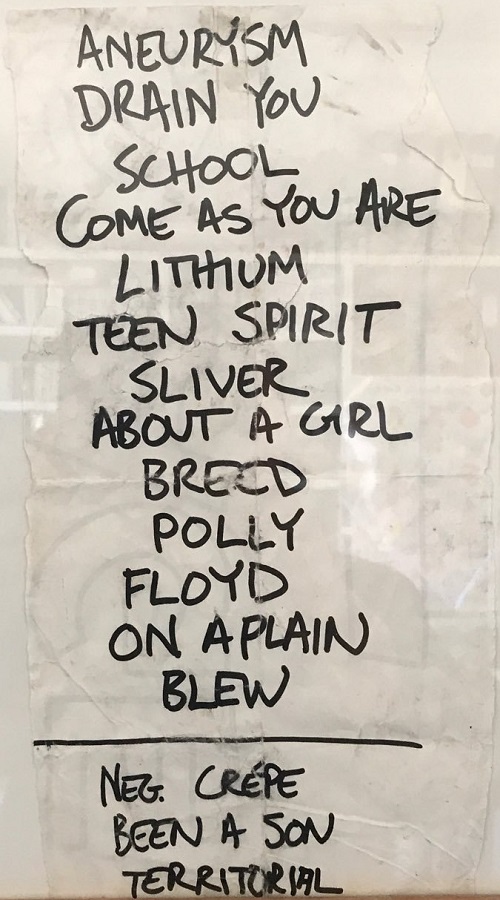 ANEURYSM
DRAIN YOU
SCHOOL
COME AS YOU ARE
LITHIUM
TEEN SPIRIT
SLIVER
ABOUT A GIRL
BREED
POLLY
FLOYD
ON A PLAIN
BLEW
NEG. CRÉPE
BEEN A SON
TERRITORIAL